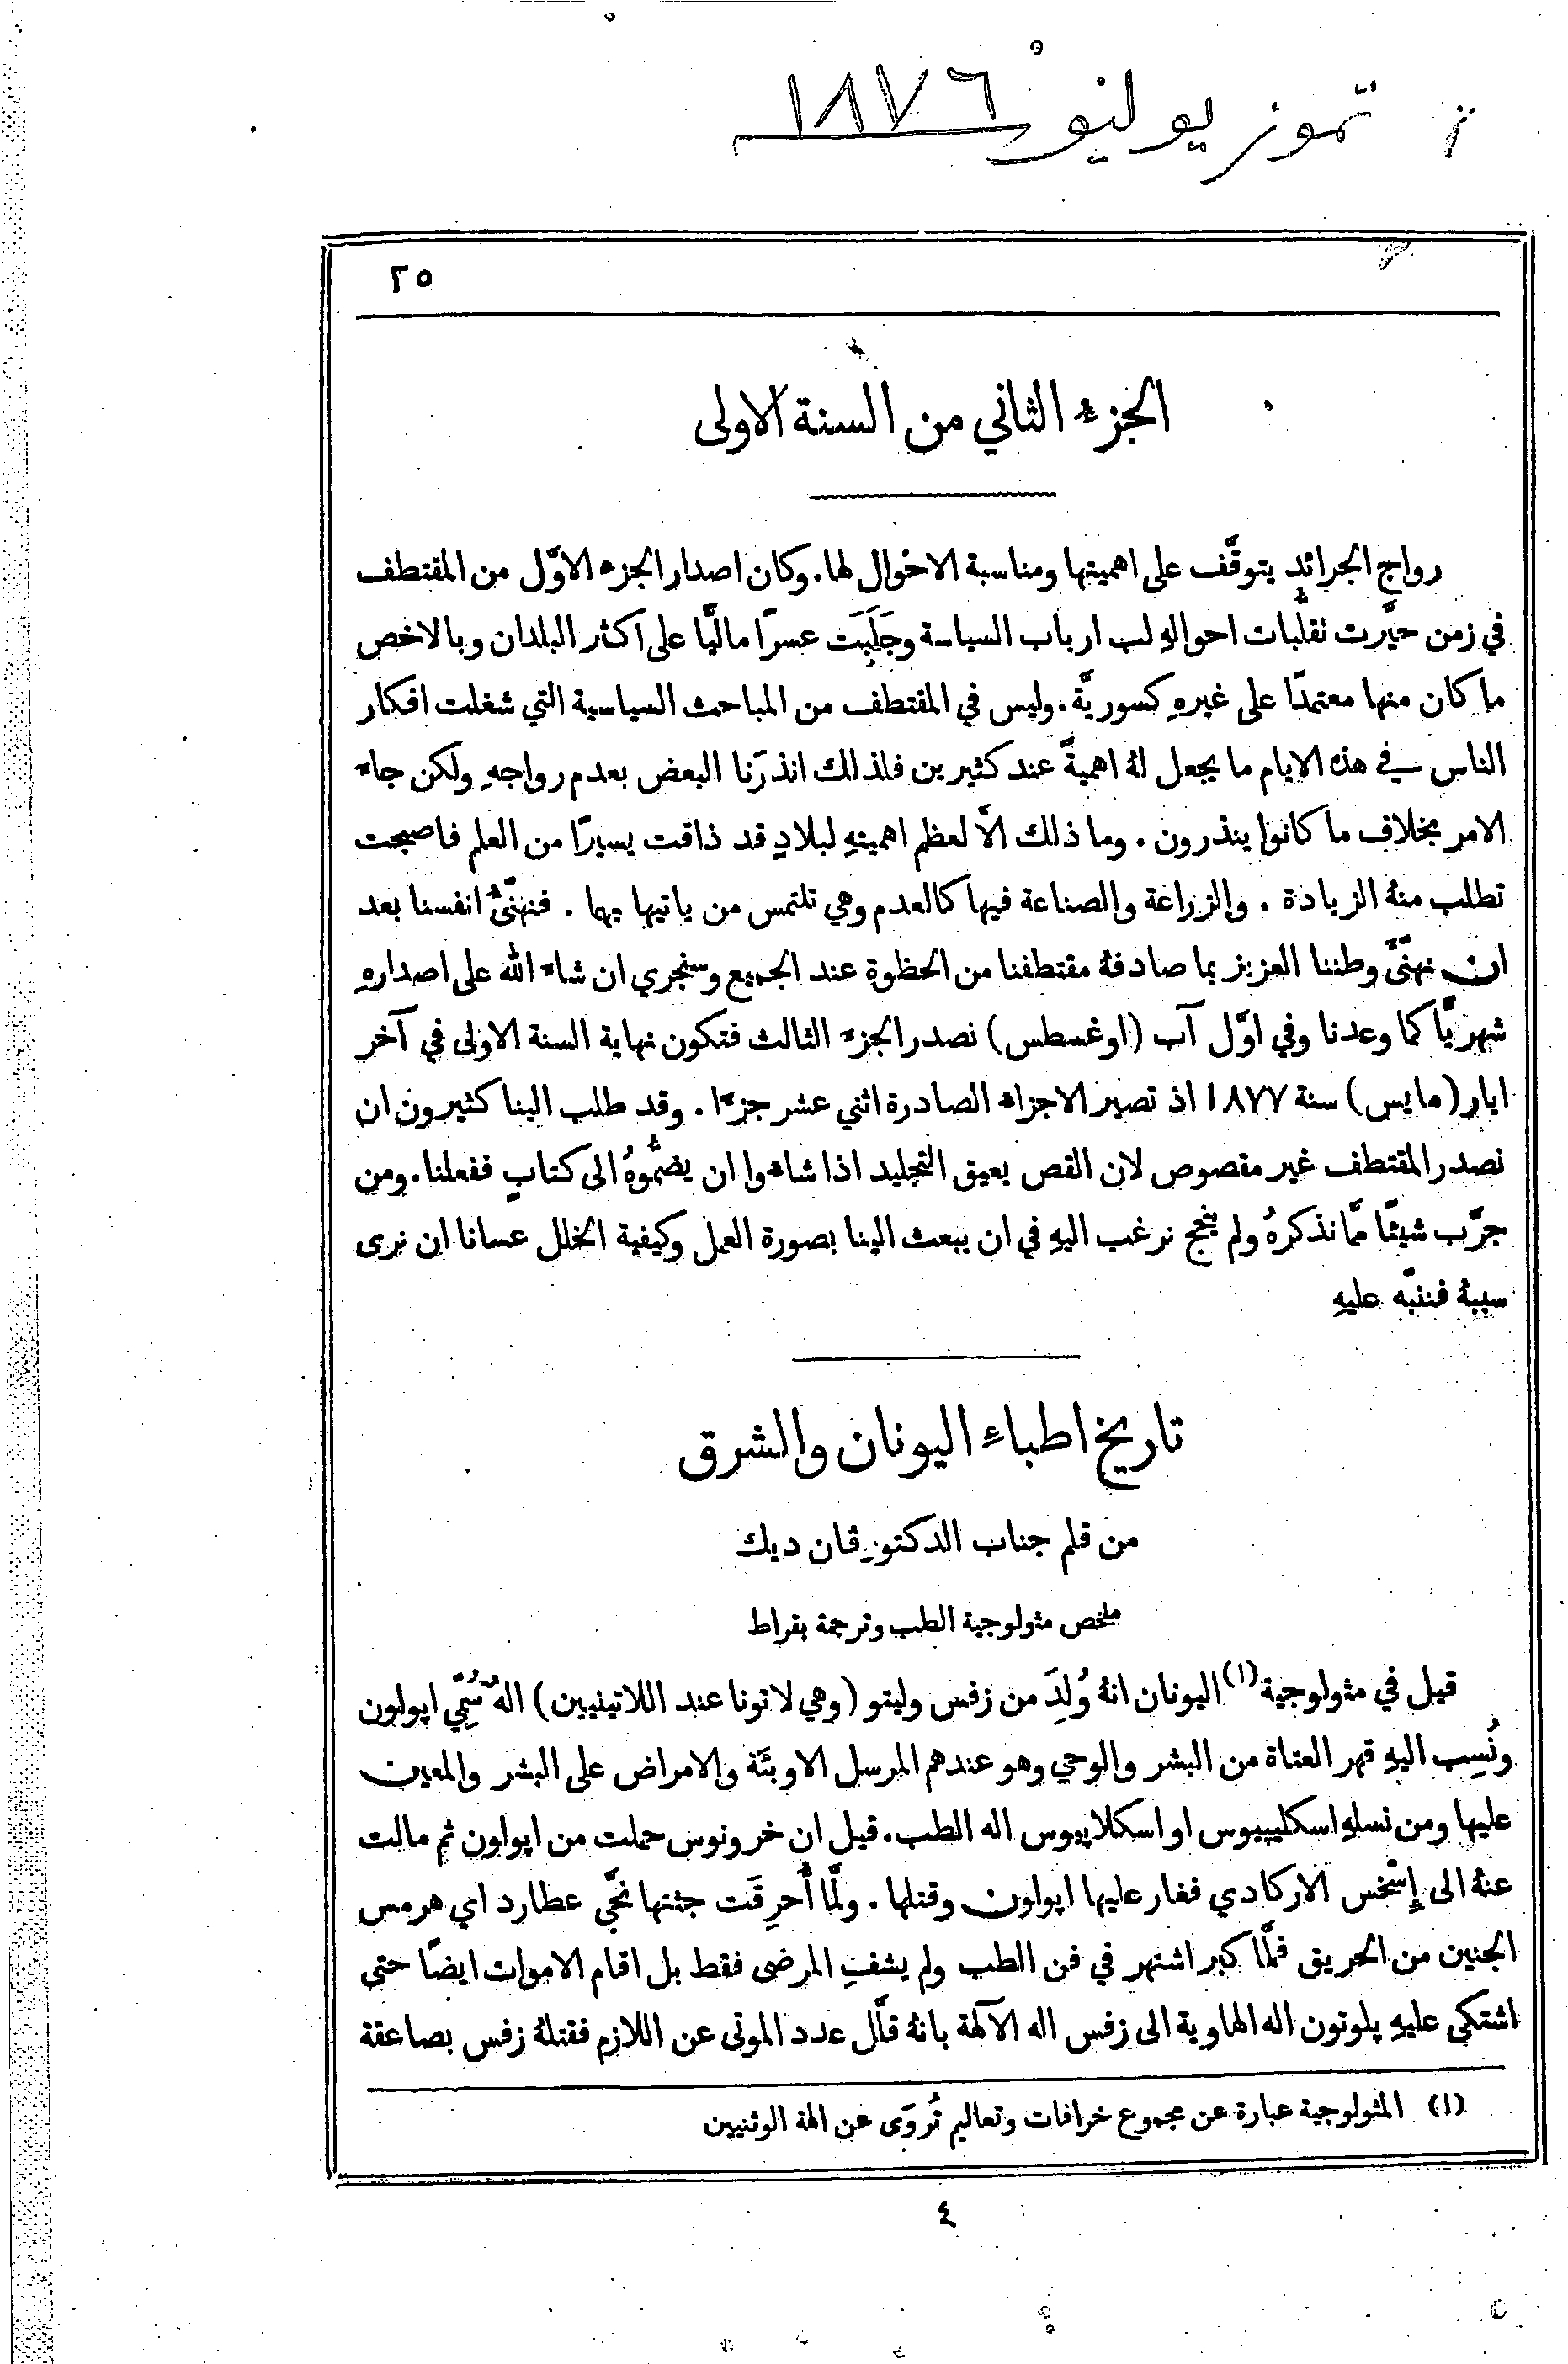 تموز يوليو ١٨٧٦
٢٥
الجزء الثاني من السنة الاولى
رواج الجرائد يتوقَّف على اهميتها ومناسبة الاحوال لها. وكان اصدار الجزء الاوَّل من المقتطف
في زمن حيَّرت تقلُّبات احوالهِ لب ارباب السياسة وجَلَبَت عسرًا ماليًّا على اكثر البلدان وبالاخص
ما كان منها معتمدًا على غيرهِ كسوريَّة. وليس في المقتطف من المباحث السياسية التي شغلت افكار
الناس في هذه الايام ما يجعل لهُ اهميةً عند كثيرين فلذلك انذرَنا البعض بعدم رواجهِ ولكن جاء
الامر بخلاف ما كانوا ينذرون. وما ذلك الَّا لعظم اهميتهِ لبلادٍ قد ذاقت يسيرًا من العلم فاصبحت
تطلب منهُ الزيادة. والزراعة والصناعة فيها كالعدم وهي تلتمس من ياتيها بهما. فنهنّئُ انفسنا بعد
ان نهنّئَ وطننا العزيز بما صادفهُ مقتطفنا من الحظوة عند الجميع وسنجري ان شاء الله على اصدارهِ
شهريًّا كما وعدنا وفي اوَّل آب (اوغسطس) نصدر الجزء الثالث فتكون نهاية السنة الاولى في آخر
ايار (مايس) سنة ١٨٧٧ اذ تصير الاجزاء الصادرة اثني عشر جزءًا. وقد طلب الينا كثيرون ان
نصدر المقتطف غير مقصوص لان القص يعيق التجليد اذا شاءوا ان يضمُّوهُ الى كتابٍ ففعلنا. ومن
جرَّب شيئًا ممَّا نذكرهُ ولم ينجح نرغب اليهِ في ان يبعث الينا بصورة العمل وكيفية الخلل عسانا ان نرى
سببهُ فننبّه عليهِ
تاريخ اطباءِ اليونان والشرق
من قلم جناب الدكتور ڤان ديك
ملخص مثولوجية الطب وترجمة بقراط
قيل في مثولوجية(١) اليونان انهُ وُلِدَ من زفس وليتو (وهي لاتونا عند اللاتينيين) الهٌ سُمِّي اپولون
ونُسِب اليهِ قهر العتاة من البشر والوحي وهو عندهم المرسل الاوبئَة والامراض على البشر والمعين
عليها ومن نسلهِ اسكليپيوس او اسكلاپيوس اله الطب. قيل ان خرونوس حملت من اپولون ثم مالت
عنهُ الى إِسْخس الاركادي فغار عليها اپولون وقتلها. ولمَّا أُحرِقَت جثتها نجَّى عطارد اي هرمس
الجنين من الحريق فلمَّا كبر اشتهر في فن الطب ولم يشفِ المرضى فقط بل اقام الاموات ايضًا حتى
اشتكى عليهِ پلوتون اله الهاوية الى زفس اله الآلهة بانهُ قلَّل عدد الموتى عن اللازم فقتلهُ زفس بصاعقة
(١) المثولوجية عبارة عن مجموع خرافات وتعاليم تُروَى عن الهة الوثنيين
٤